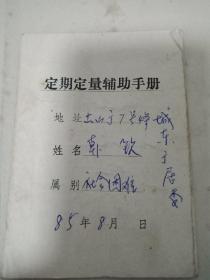 定期定量辅助手册
地址 土山子7号峰
城东子居委
姓名 韩钦
属别 社会困难
85年8月 日